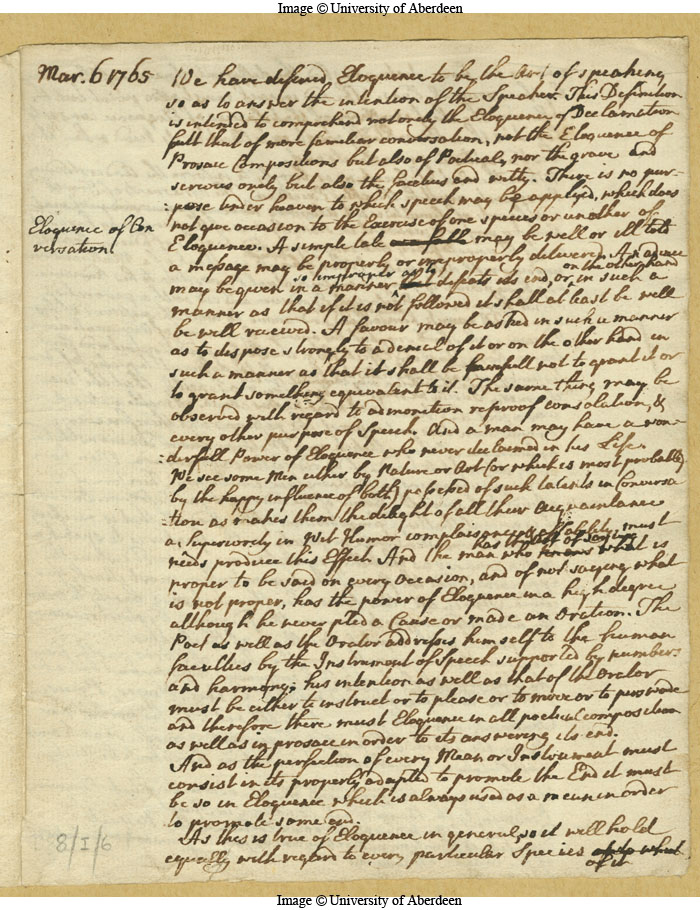 Image © University of Aberdeen
Mar. 6 1765
We have defined, Eloquence to be the Art of speaking
so as to answer the intention of the Speaker. This Definition
is intended to comprehend not only the Eloquence of Declamation
but that of more familiar conversation, not the Eloquence of
Prosaic Compositions but also of Poetical, nor the grave and
serious only but also the facetious and witty. There is no pur-
pose under heaven to which speech may be applyed, which does
not give occasion to the Exercise of one species or another of
Eloquence of Con
versation
Eloquence. A simple tale may be well or ill told
a message may be properly or improperly delivered. An advice
may be given in a manner so improper as to defeats its end, or on the other hand in such a
manner as that if it is not followed it shall at least be well
be well received. A favour may be asked in such a manner
as to dispose strongly to a denial of it or on the other hand in
such a manner as that it shall be not to grant it or
to grant something equivalent to it. The same thing may be
observed with regard to admonition reproof consolation, &
every other purpose of Speech. And a man may have a won-
derfull Power of Eloquence who never declaimed in his Life.
We see some Men either by Nature or Art (or which is most probable)
by the happy influence of both) possessed of such talents in Conversa
tion as makes them the delight of all their Acquaintance
a Superiority in Wit Humor complaisance & affability must
needs produce this Effect. And the man who has the art of saying what is
proper to be said on every occasion, and of not saying what
is not proper, has the power of Eloquence in a high degree
although he never pled a Cause or made an Oration. The
Poet as well as the Orator addresses himself to the human
faculties by the Instrument of Speech supported by numbers
and harmony; his intention as well as that of the Orator
must be either to instruct or to please or to move or to perswade
and therefore there must Eloquence in all poetical composition
as well as in prosaic in order to its answering its end.
And as the perfection of every Mean or Instrument must
consist in its properly adapted to promote the End it must
be so in Eloquence which is always used as a mean in order
to promote some end.
As this is true of Eloquence in general, so it will hold
equally with regard to every particular Species
of it
8/I/6
Image © University of Aberdeen